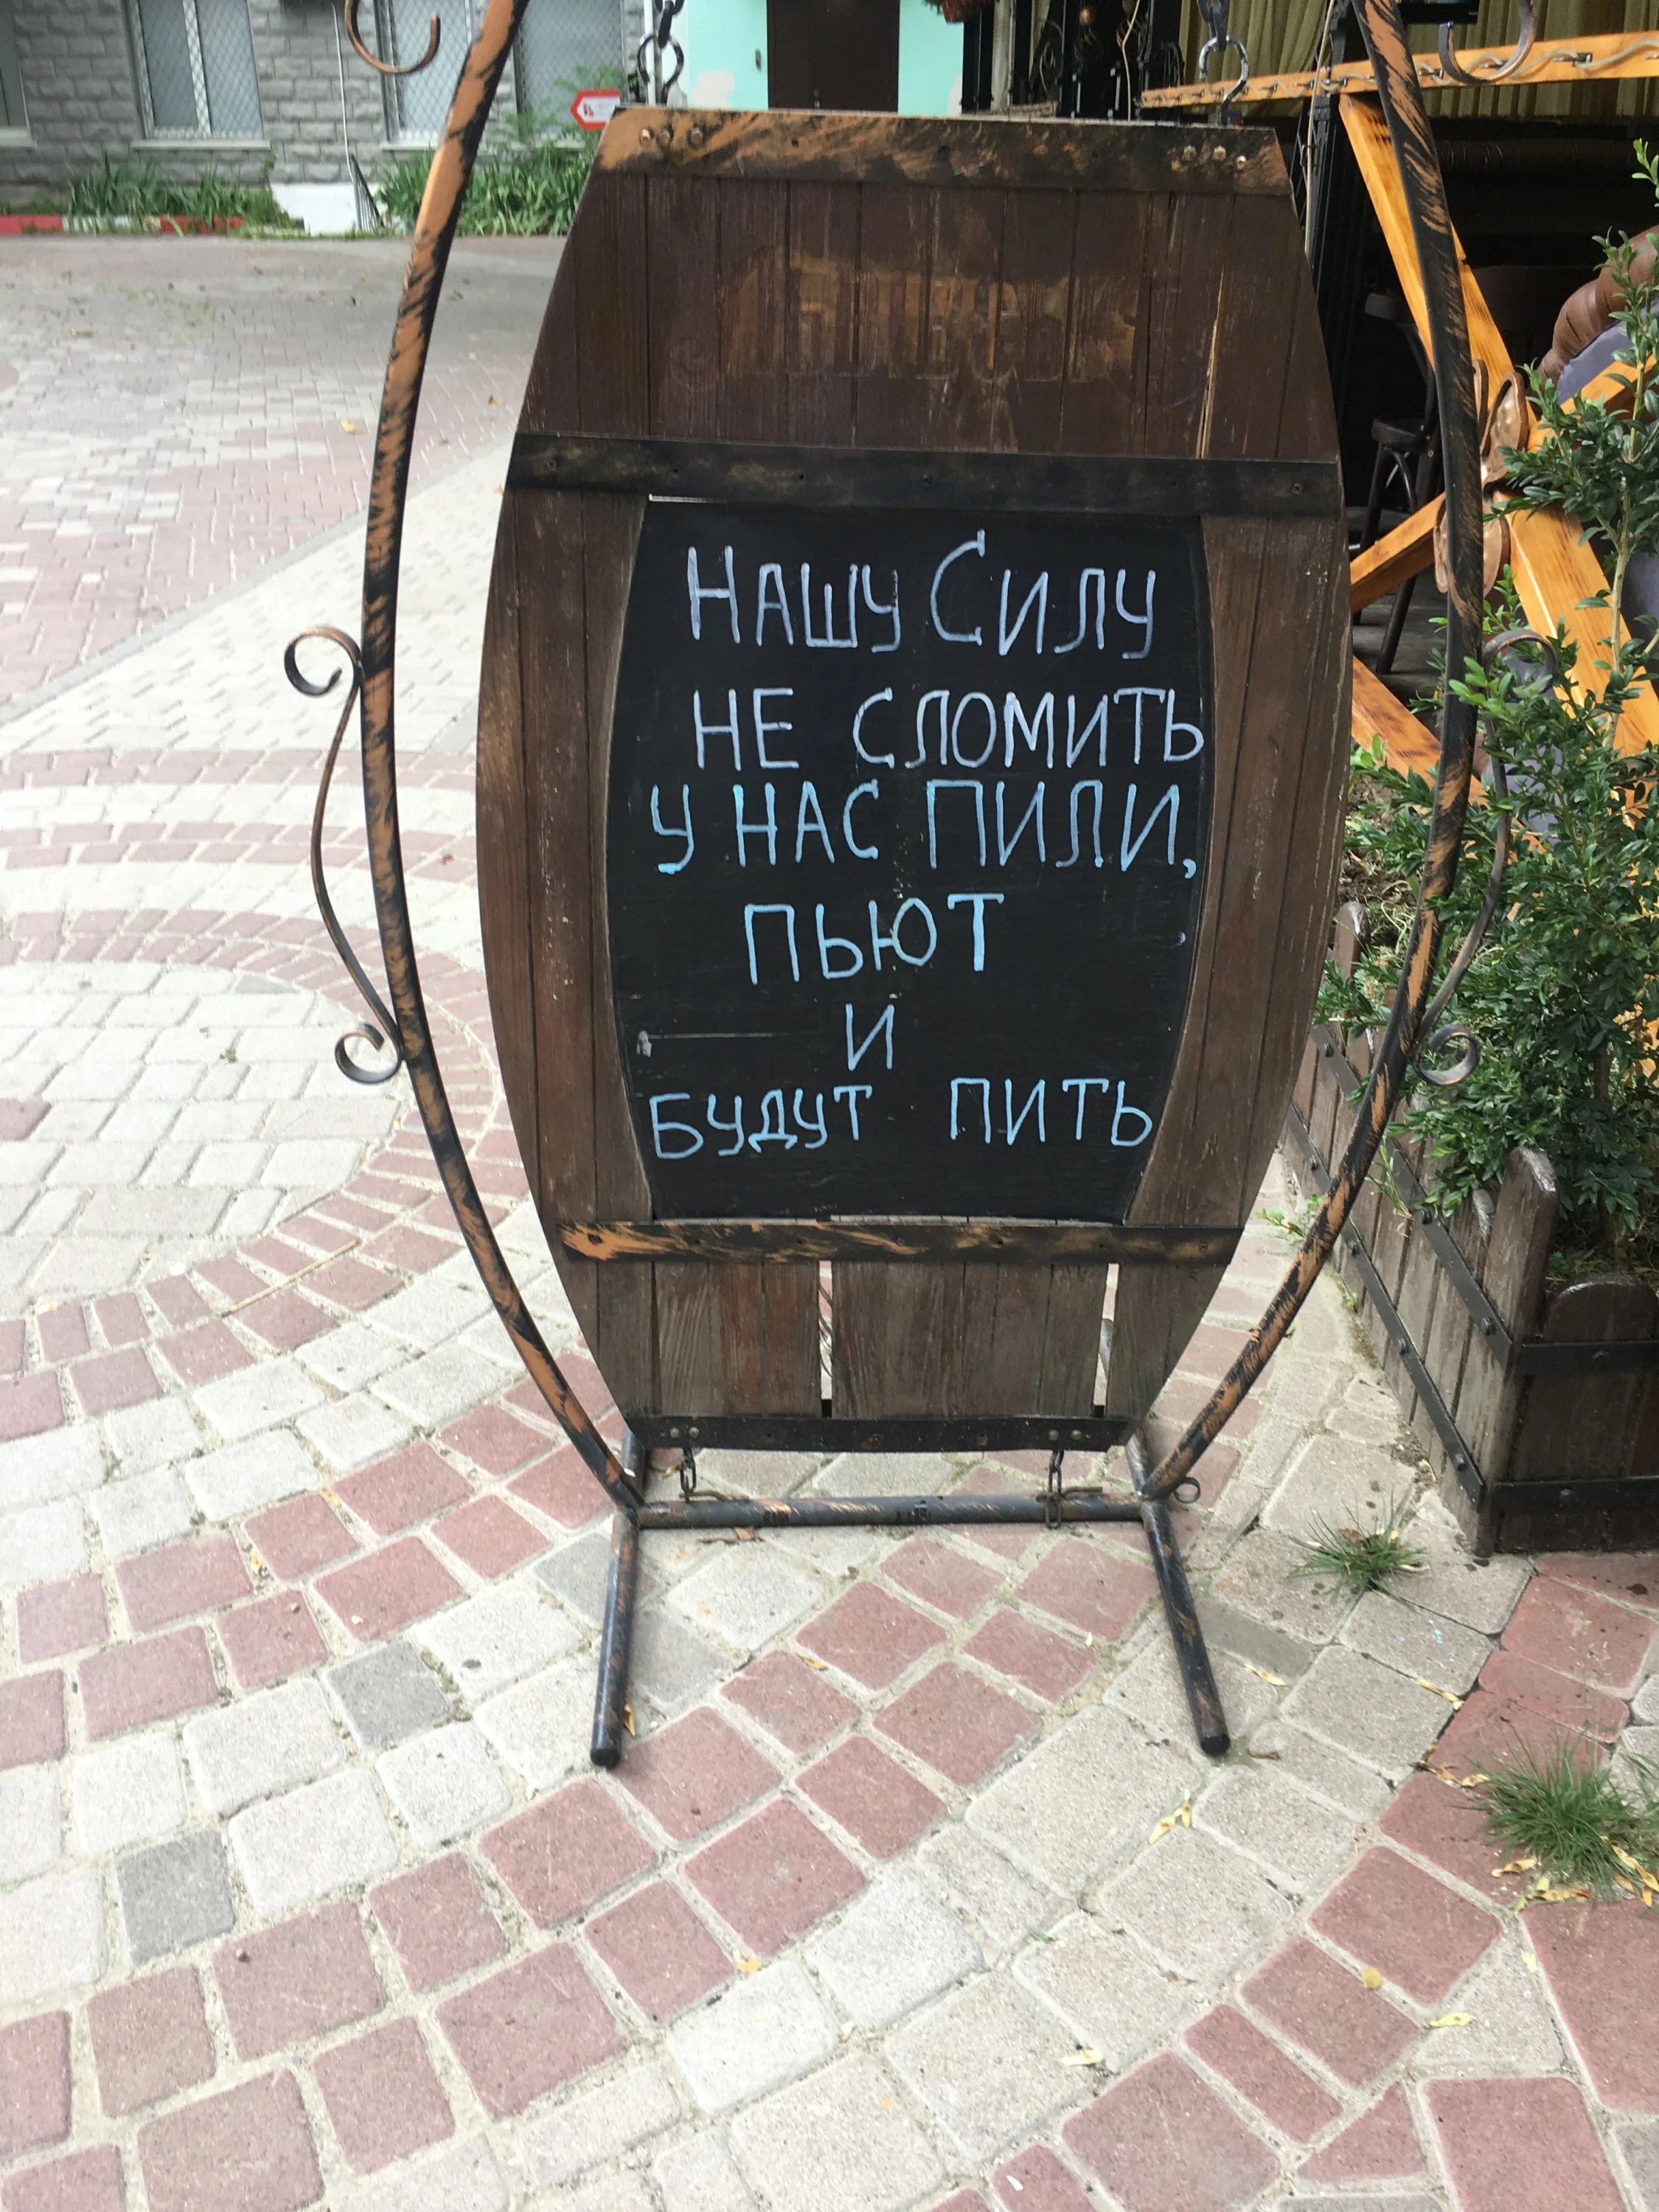 Нашу Силу
не сломить
у нас пили,
пьют
и
будут пить